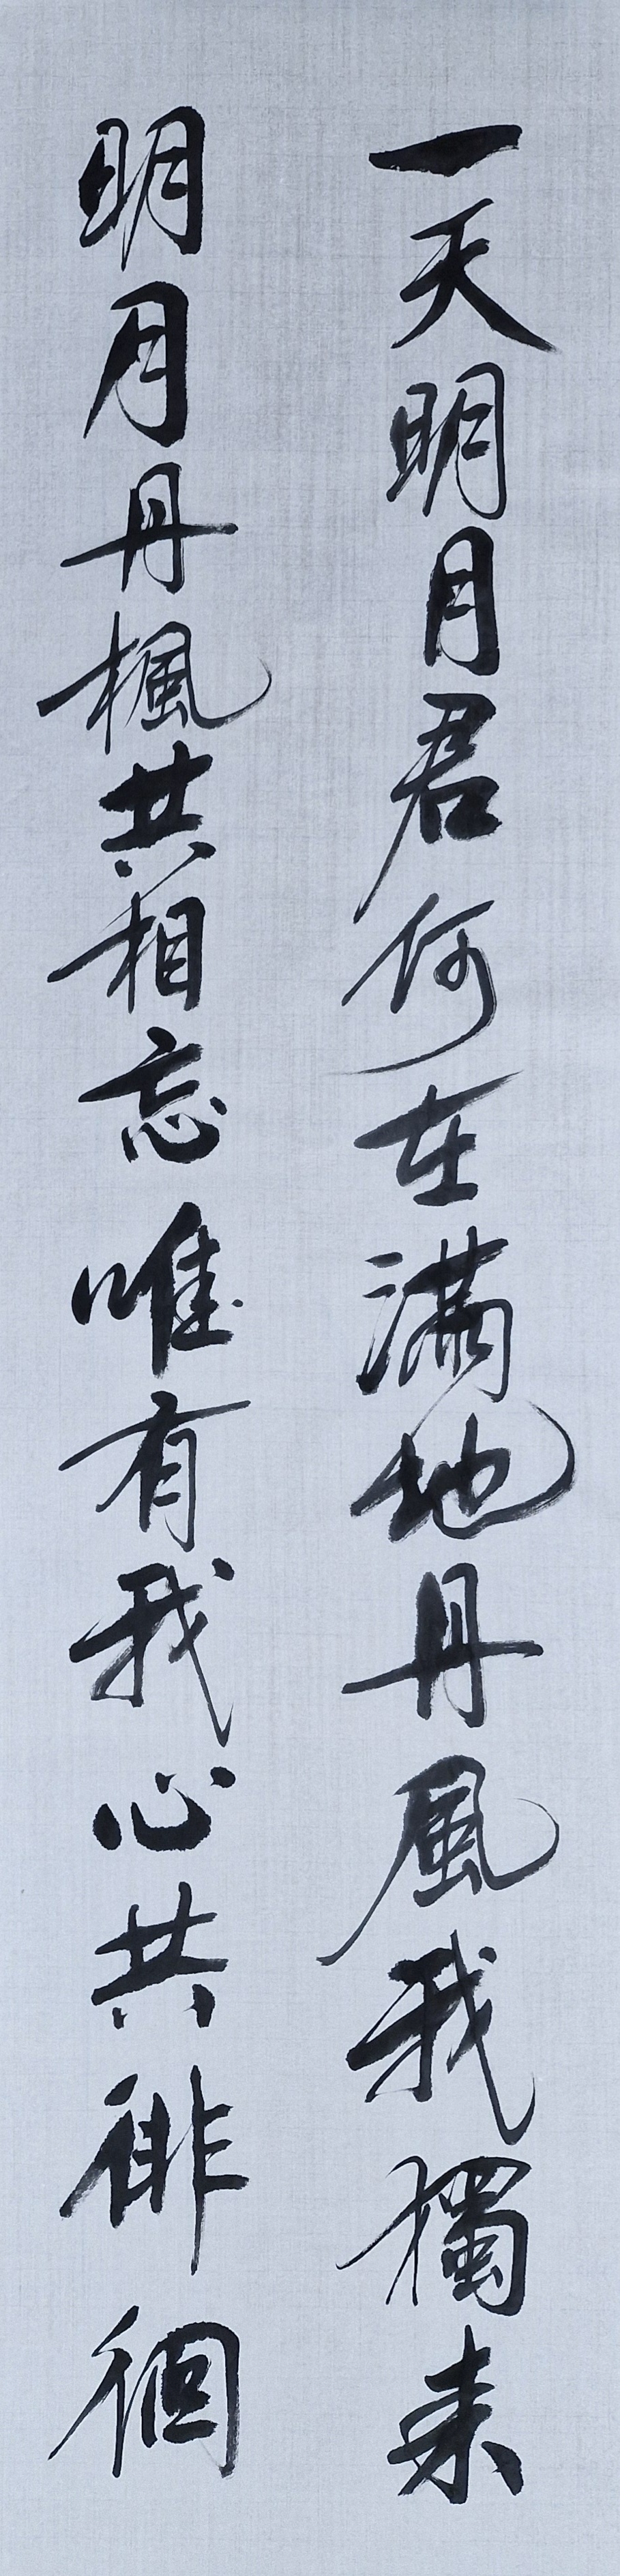 一天明月君何在滿地丹風我獨来
明月丹楓共相忘唯有我心共徘徊